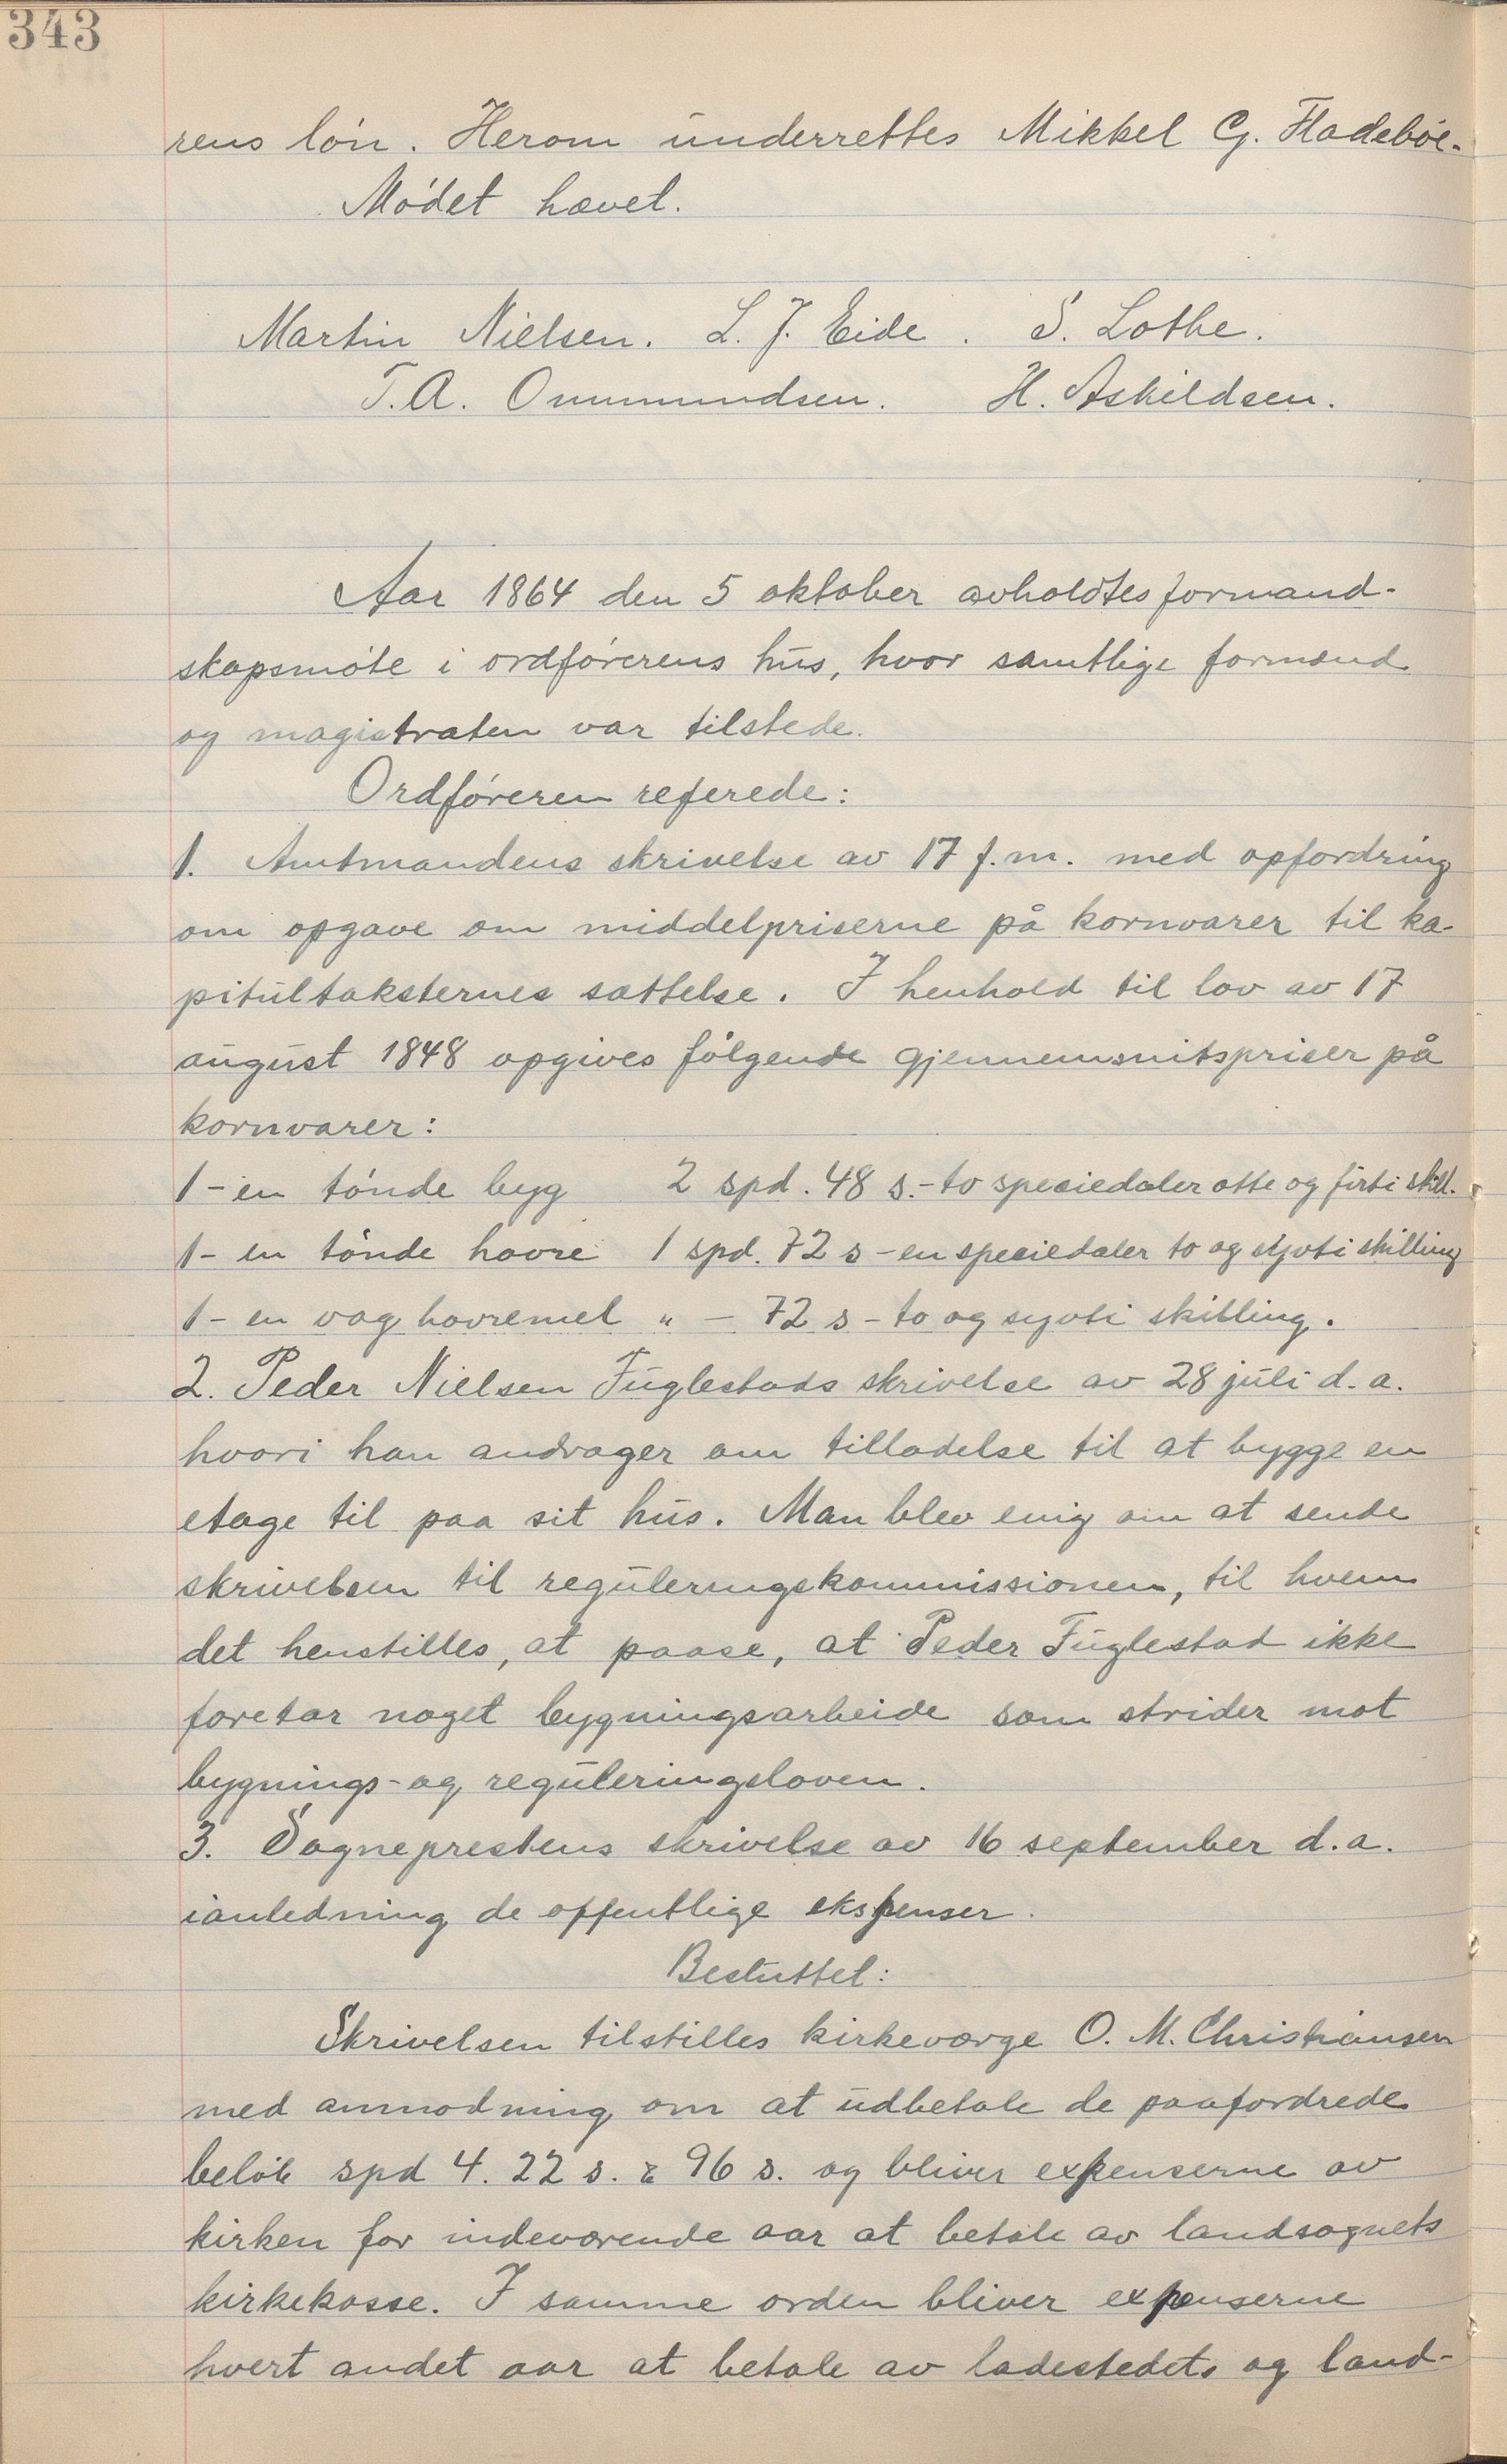 343
rens løn. Herom underrettes Mikkel G. Fladebøe.
Mødet hævet.
Martin Nielsen. L. J. Eide. S. Lothe.
T. A. Ommundsen. H. Askildsen.
Aar 1864 den 5 oktober avholdtes formand-
skapsmøte i ordførerens hus, hvor samtlige formænd
og magistraten var tilstede.
Ordføreren referede:
1. Amtmandens skrivelse av 17 f.m. med opfordring
om opgave om middelpriserne på kornvarer til ka-
pitultaksternes sættelse. I henhold til lov av 17
august 1848 opgives følgende gjennemsnitspriser på
kornvarer:
1 - en tønde byg 2 spd. 48 s. - to speciedaler otte og førti skill.
1 - en tønde havre 1 spd. 72 s - en speciedaler to og sytti skilling
1 - en vog havremel " - 72 s - to og sytti skilling.
2. Peder Nielsen Fuglestads skrivelse av 28 juli d.a.
hvori han andrager om tilladelse til at bygge en
etage til paa sit hus. Man blev enig om at sende
skrivelsen til reguleringskommissionen, til hvem
det henstilles, at paase, at Peder Fuglestad ikke
foretar noget bygningsarbeide som strider mot
bygnings- og reguleringsloven.
3. Sogneprestens skrivelse av 16 september d.a.
ianledning de offentlige ekspenser.
Besluttet:
Skrivelsen tilstilles kirkeværge O. M. Christiansen
med anmodning om at udbetale de paafordrede
beløb spd 4. 22 s. & 96 s. og bliver expenserne av
kirken for indeværende aar at betale av landsognets
kirkekasse. I samme orden bliver expenserne
hvert andet aar at betale av ladestedets og land-